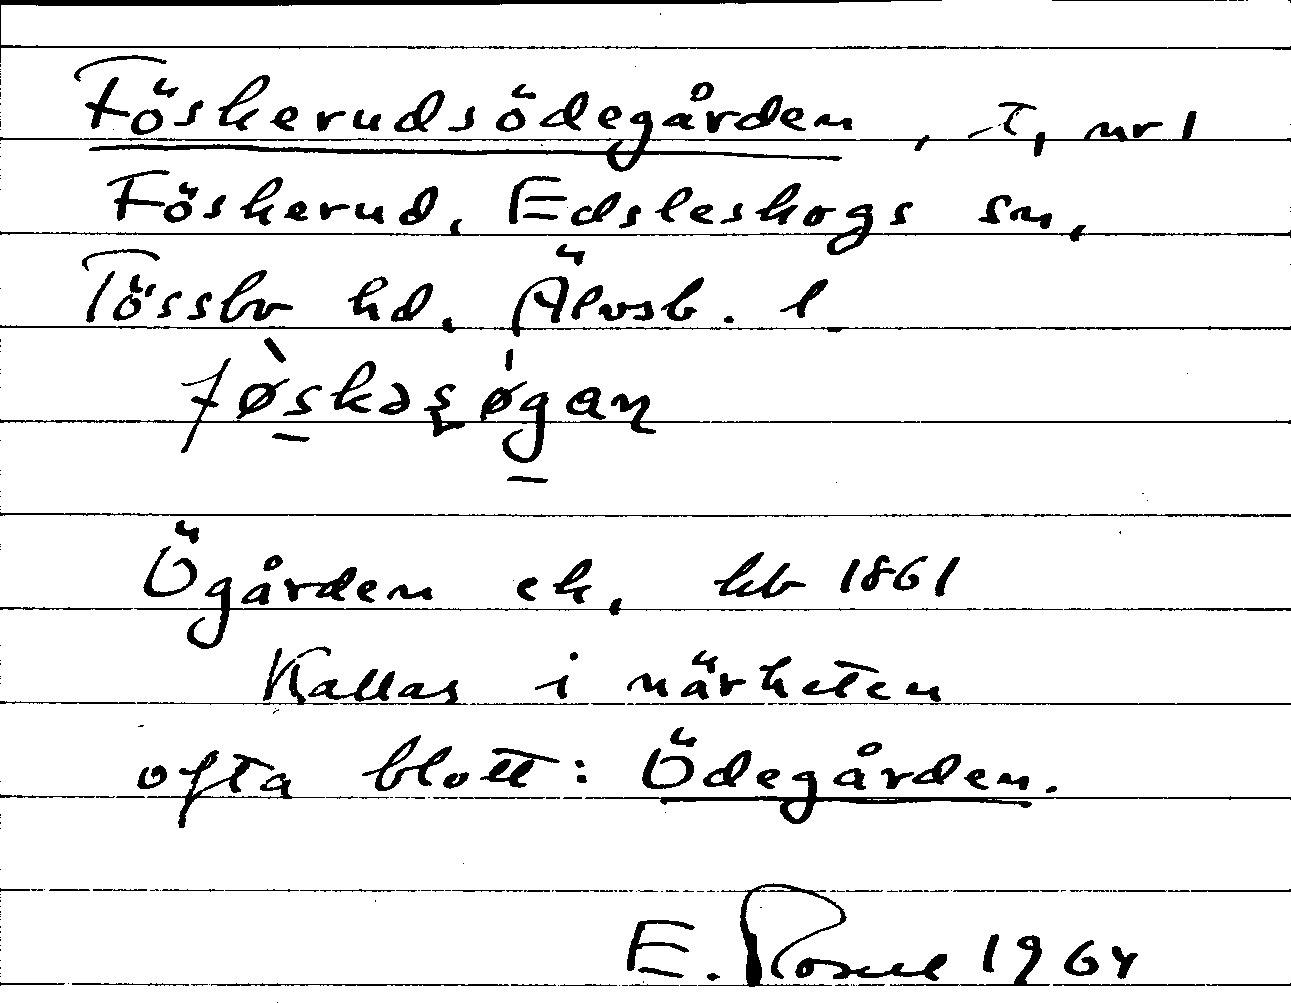 Föskerudsödegården, t, nr 1
Föskerud, Edsleskogs sn,
Tössbo hd, Älvsb. l
fø̀skəsǿgaɳ
Ögården ek, kb 1861
Kallas i närheten
ofta blott: Ödegården.
E. 1964